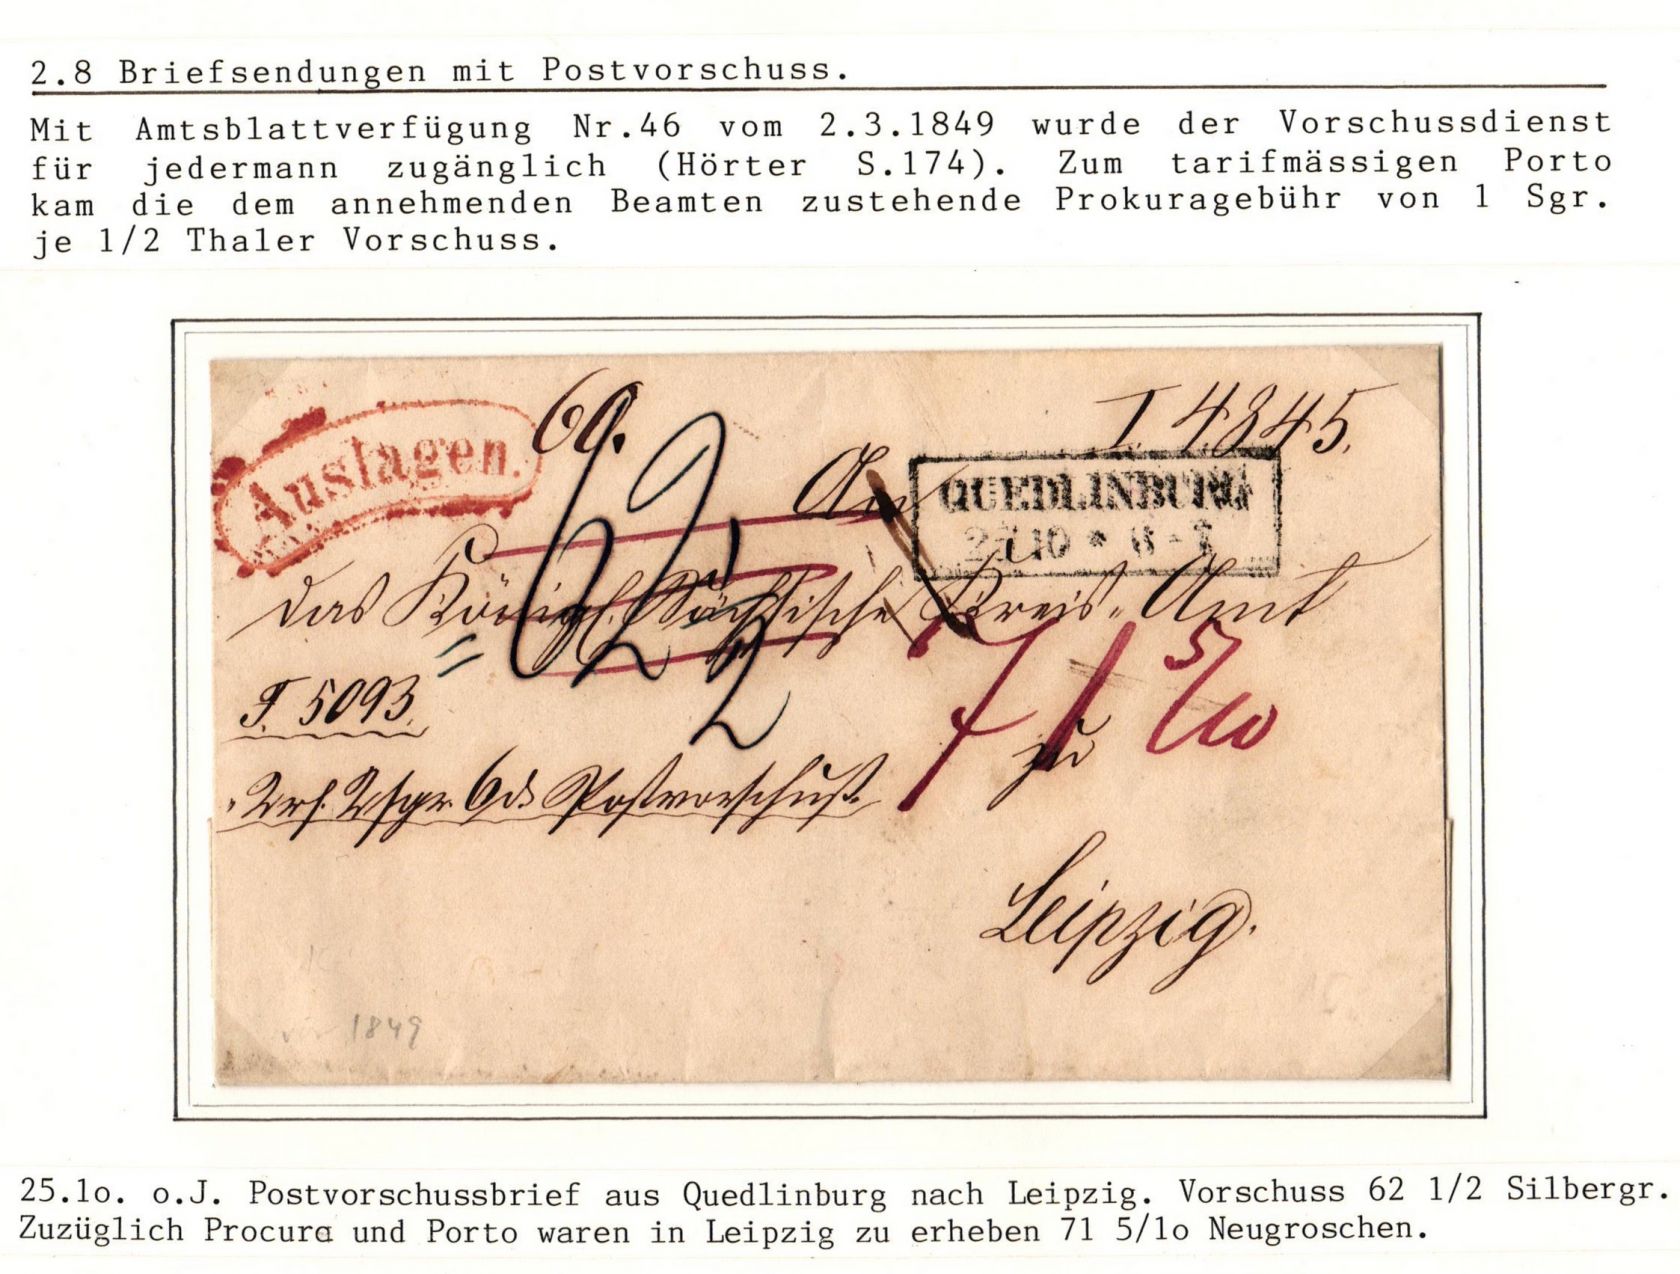 2.8 Briefsendungen mit Postvorschuss.
Mit Amtsblattverfügung Nr.46 vom 2.3.1849 wurde der Vorschussdienst
für jedermann zugänglich (Hörter S.174). Zum tarifmässigen Porto
kam die dem annehmenden Beamten zustehende Prokuragebühr von 1 Sgr.
je 1/2 Thaler Vorschuss.
I. 4845.
Auslagen.
An
QUEDLINBURG
25 10 * 6-7
das Königl. Sächsische Kreis-Amt
62 1/2
71 5/10
5093.
zu
6 d. Postvorschuß.
Leipzig.
1849
25.1o. o.J. Postvorschussbrief aus Quedlinburg nach Leipzig. Vorschuss 62 1/2 Silbergr.
Zuzüglich Procura und Porto waren in Leipzig zu erheben 71 5/1o Neugroschen.